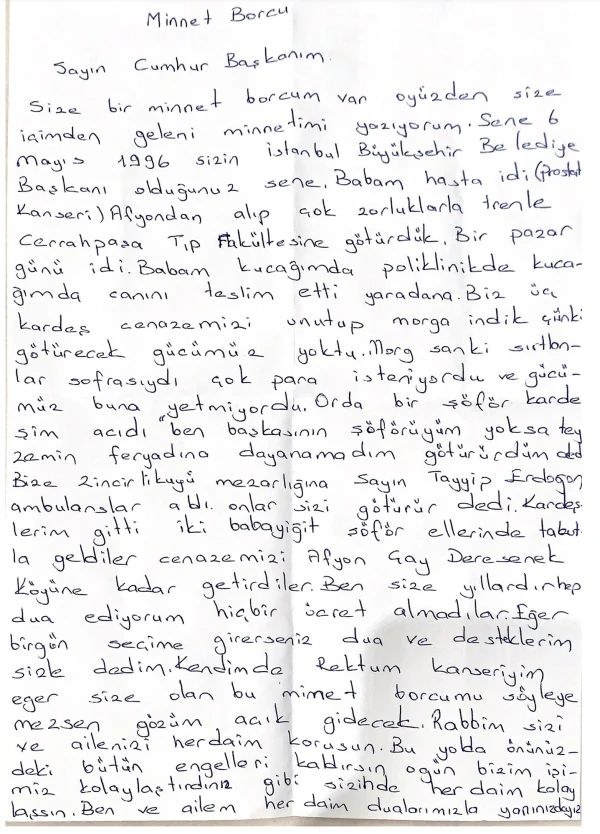 Minnet Borcu
Sayın Cumhur Başkanım.
Size bir minnet borcum var oyüzden size
içimden geleni minnetimi yazıyorum. Sene 6
Mayıs 1996 sizin istanbul Büyükşehir Belediye
Başkanı olduğunuz sene. Babam hasta idi (Prostat
Kanseri) Afyondan alıp çok zorluklarla trenle
Cerrahpaşa Tıp Fakültesine götürdük. Bir pazar
günü idi. Babam kucağımda poliklinikde kuca-
ğımda canını teslim etti yaradana. Biz üç
kardeş cenazemizi unutup morga indik çünki
götürecek gücümüz yoktu. Morg sanki sırtlan-
lar sofrasıydı çok para isteniyordu ve gücü-
müz buna yetmiyordu. Orda bir şöför karde
şim acıdı "ben başkasının şöförüyüm yoksa tey
zemin feryadına dayanamadım götürürdüm ded
Bize zincirlikuyu mezarlığına Sayın Tayyip Erdoğan
ambulanslar aldı. onlar sizi götürür dedi. Kardeş
lerim gitti iki babayiğit şöför ellerinde tabut
la geldiler cenazemizi Afyon Çay Deresenek
Köyüne kadar getirdiler. Ben size yıllardır hep
dua ediyorum hiçbir ücret almadılar. Eğer
birgün seçime girerseniz dua ve desteklerim
sizle dedim. Kendimde Rektum kanseriyim
eger size olan bu minet borcumu söyleye
mezsen gözüm açık gidecek. Rabbim sizi
ve ailenizi herdaim korusun. Bu yolda önünüz-
deki bütün engelleri kaldırsın ogün bizim işi-
miz kolaylaştırdınız gibi sizinde her daim kolay
laşsın. Ben ve ailem her daim dualarımızla yanınızdayız